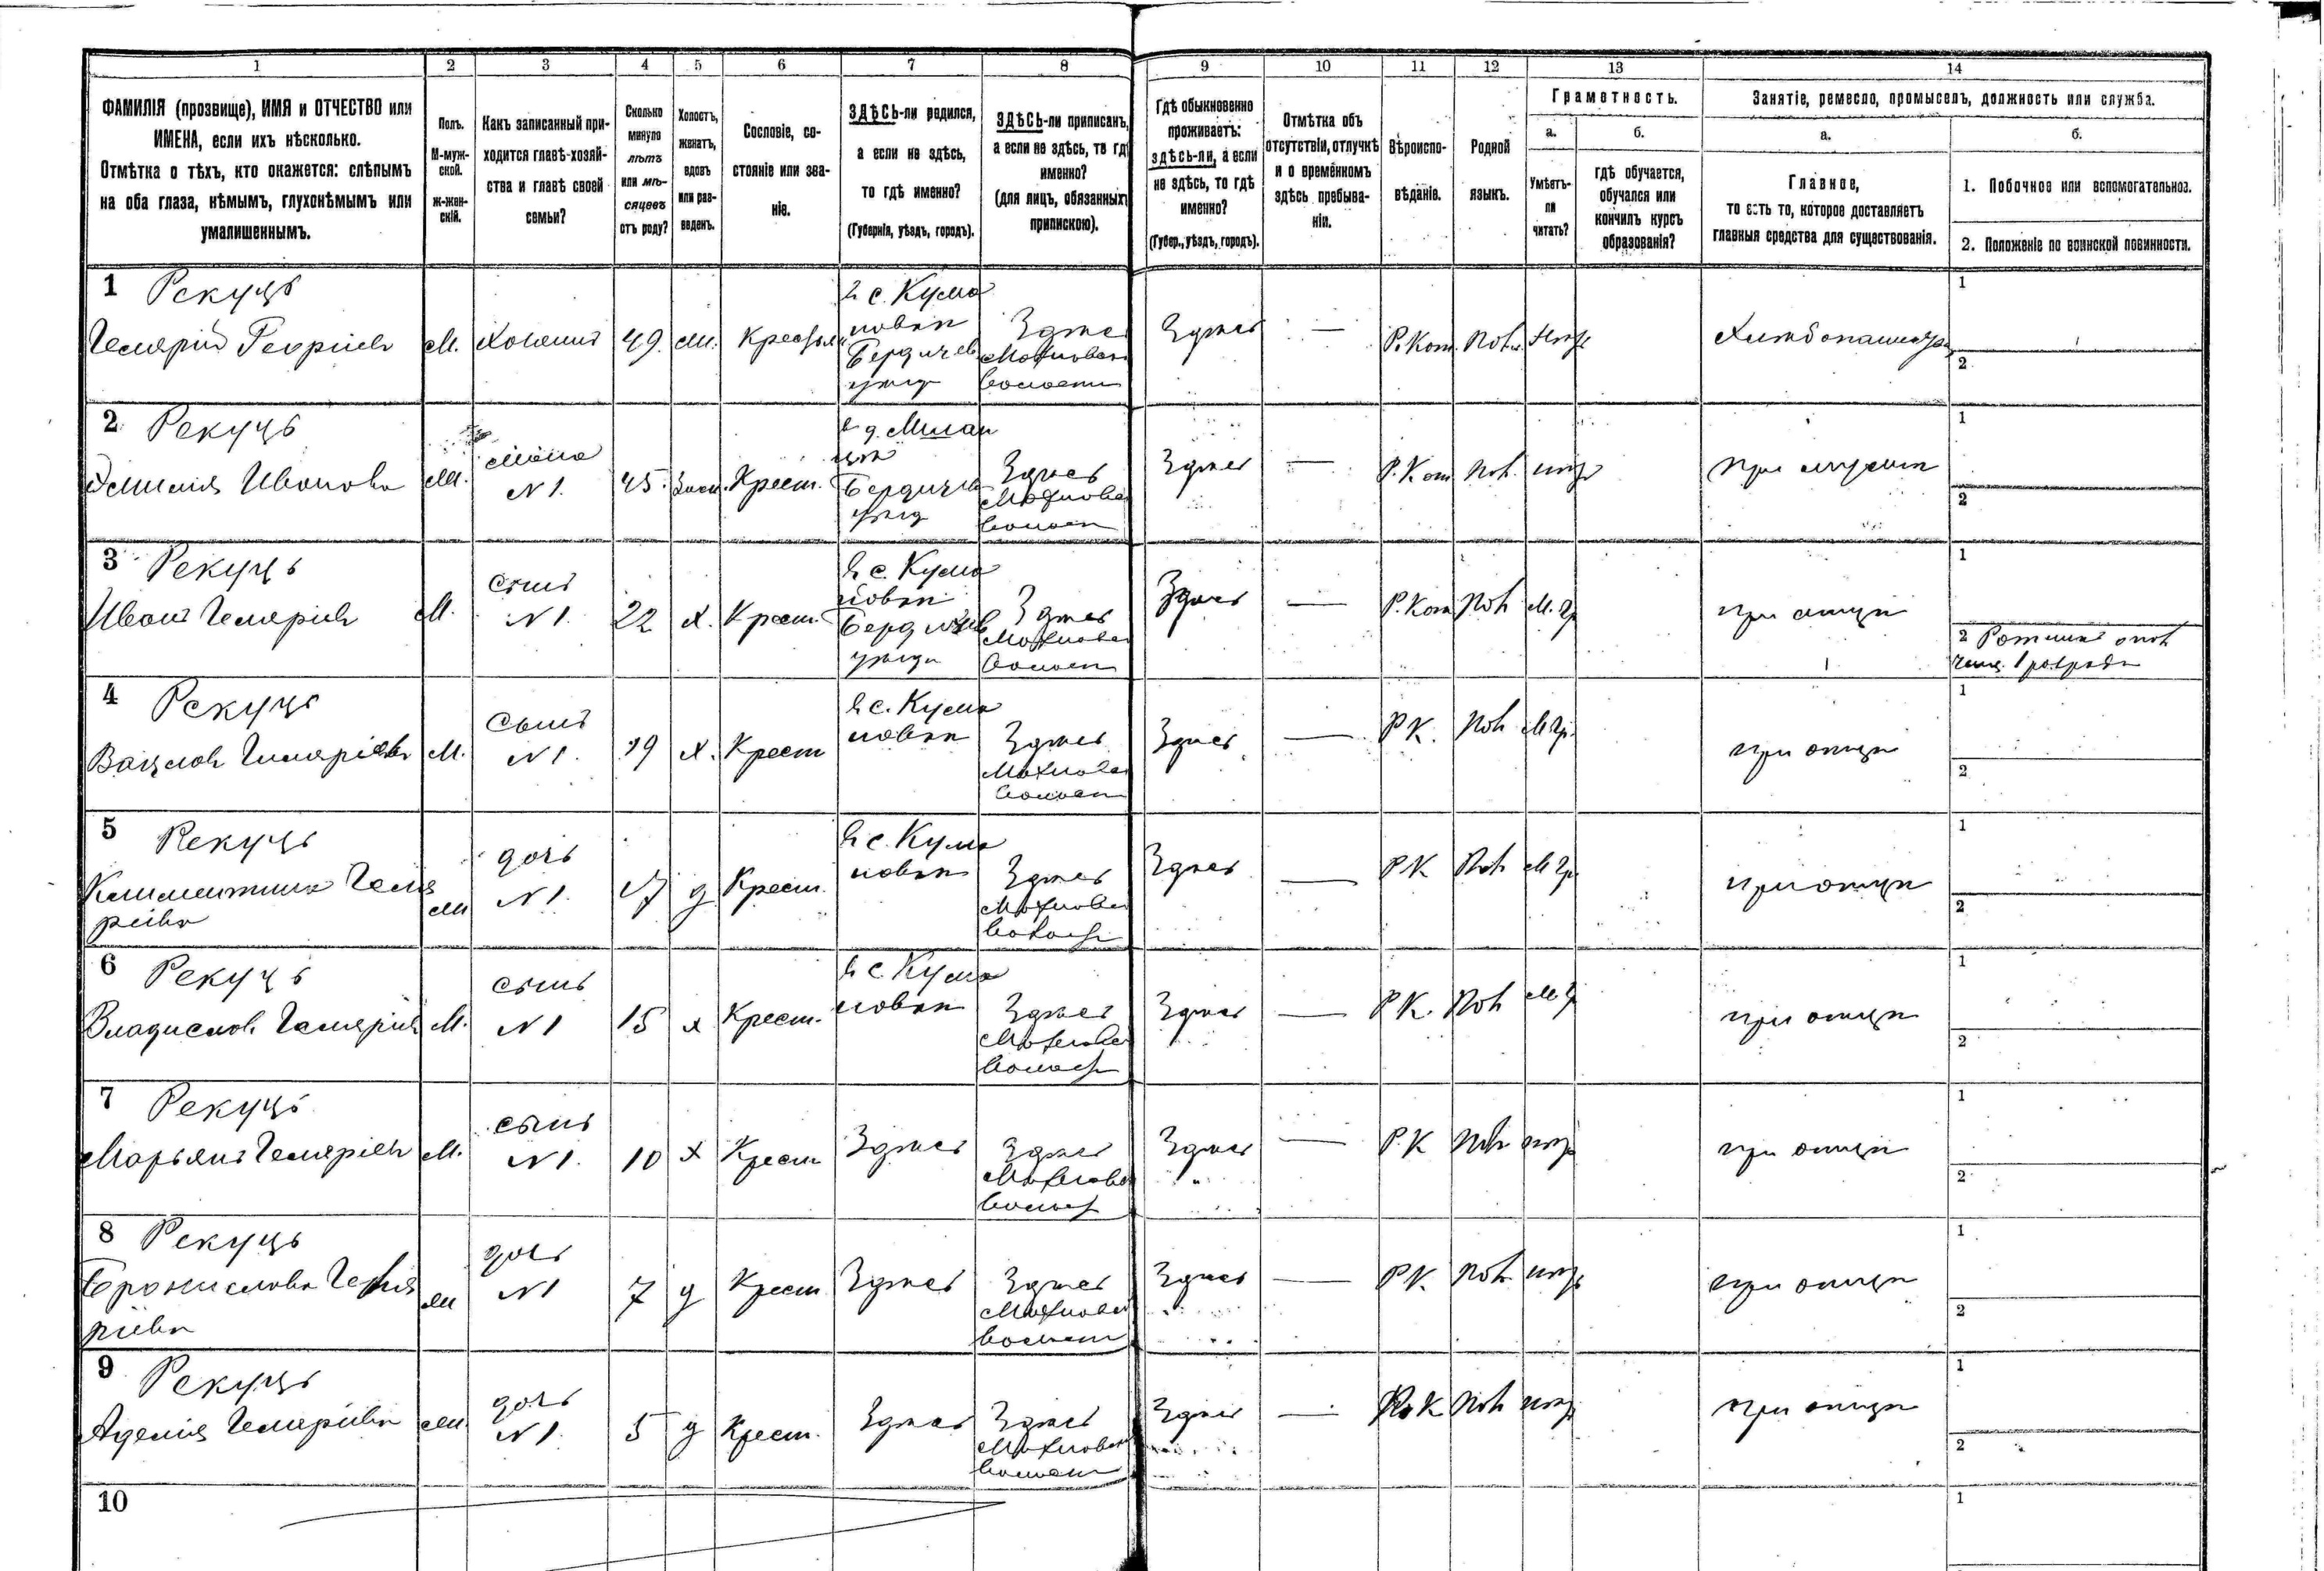 1 2 3 4 5 6 7 8 9 10 11 12 13 14
ФАМИЛІЯ (прозвище), ИМЯ и ОТЧЕСТВО или
ИМЕНА, если ихъ нѣсколько.
Отмѣтка о тѣхъ, кто окажется: слѣпымъ
на оба глаза, нѣмымъ, глухонѣмымъ или
умалишеннымъ.
Полъ.
М-муж-
ской.
ж-жен-
скій.
Какъ записанный при-
ходится главѣ-хозяй-
ства и главѣ своей
семьи?
Сколько
минуло
лѣтъ
или мѣ-
сяцевъ
отъ роду?
Холостъ,
женатъ,
вдовъ
или раз-
веденъ.
Сословіе, со-
стояніе или зва-
ніе.
ЗДѢСЬ-ли родился,
а если не здѣсь,
то гдѣ именно?
(Губернія, уѣздъ, городъ).
ЗДѢСЬ-ли приписанъ,
а если не здѣсь, то гдѣ
именно?
(для лицъ, обязанныхъ
припискою).
Гдѣ обыкновенно
проживаетъ:
здѣсь-ли, а если
не здѣсь, то гдѣ
именно?
(Губер., уѣздъ, городъ).
Отмѣтка объ
отсутствіи, отлучкѣ
и о временномъ
здѣсь пребыва-
ніи.
Вѣроиспо-
вѣданіе.
Родной
языкъ.
Грамотность.
а.
Умѣетъ-
ли
читать?
б.
гдѣ обучается,
обучался или
кончилъ курсъ
образованія?
Занятіе, ремесло, промыселъ, должность или служба.
а.
Главное,
то есть то, которое доставляетъ
главныя средства для существованія.
б.
1. Побочное или вспомогательное.
2. Положеніе по воинской повинности.
1 Рекуць
М. Хозяинъ 49. Крестьян
в с. Кума
новки
Бердичев
уѣзд
Здѣсь
Махновской
волости
Здѣсь — Р. Кат. Пол.
1
2
2 Рекуць
Эмилія Иванова
жена
N 1. 45. Зам. Крест.
Бердичев
уѣзд
Здѣсь
Махновск
волост
Здѣсь — Р. Кат Пол. при мужѣ
1
2
3 Рекуць
Иванъ
М.
сынъ
N 1. 22 х. Крест.
в с. Кума
новки
Бердичев
уѣзда
Здѣсь
Махновск
волост
Здѣсь — Р. Кат Пол при отцѣ
1
2 Ратникъ опол
чен. 1 разряда
4 Рекуць
Вацлав М.
сынъ
N 1. 19 х. Крест
в с. Кума
новки
Здѣсь
Махновск
волост
Здѣсь — Р К. Пол при отцѣ
1
2
5 Рекуць
дочь
N 1. 17 д Крест.
в с. Кума
новки
Здѣсь
Махновск
волост
Здѣсь — Р К Пол при отцѣ
1
2
6 Рекуць
Владислав М.
сынъ
N 1 15 х Крест.
в с. Кума
новки
Здѣсь
Махновск
волост
Здѣсь — Р К. Пол при отцѣ
1
2
7 Рекуць
Марьянъ М.
сынъ
N 1. 10 х Крест
Здѣсь
Здѣсь
Махновск
волост
Здѣсь — Р К Пол при отцѣ
1
2
8 Рекуць
Бронислава
дочь
N 1 7 д Крест
Здѣсь
Здѣсь
Махновск
волост
Здѣсь — Р К. Пол при отцѣ
1
2
9 Рекуць
Аделія
дочь
N 1. 5 д Крест.
Здѣсь
Здѣсь
Махновск
волост
Здѣсь — Р. К Пол при отцѣ
1
2
10
1